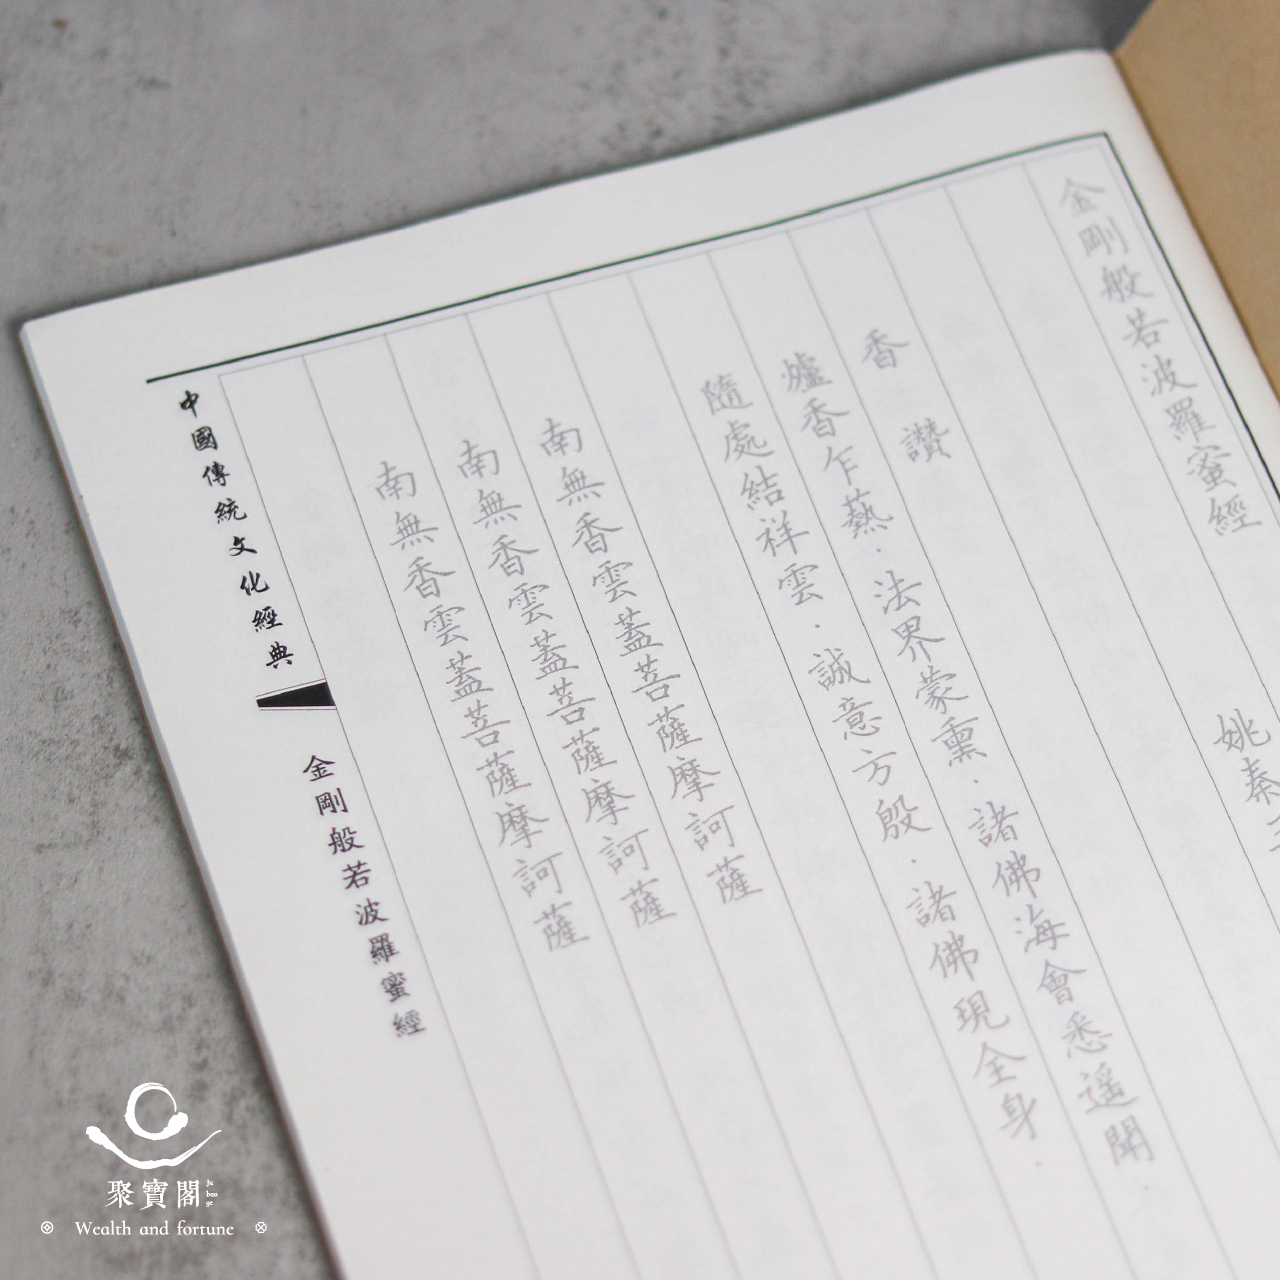 金剛般若波羅蜜經
姚秦三
香 讚
爐香乍爇．法界蒙熏．諸佛海會悉遥聞．
隨處結祥雲．誠意方殷．諸佛現全身．
南無香雲蓋菩薩摩訶薩
南無香雲蓋菩薩摩訶薩
南無香雲蓋菩薩摩訶薩
中國傳統文化經典
金剛般若波羅蜜經
聚寶閣
Ju bao ge
Wealth and fortune